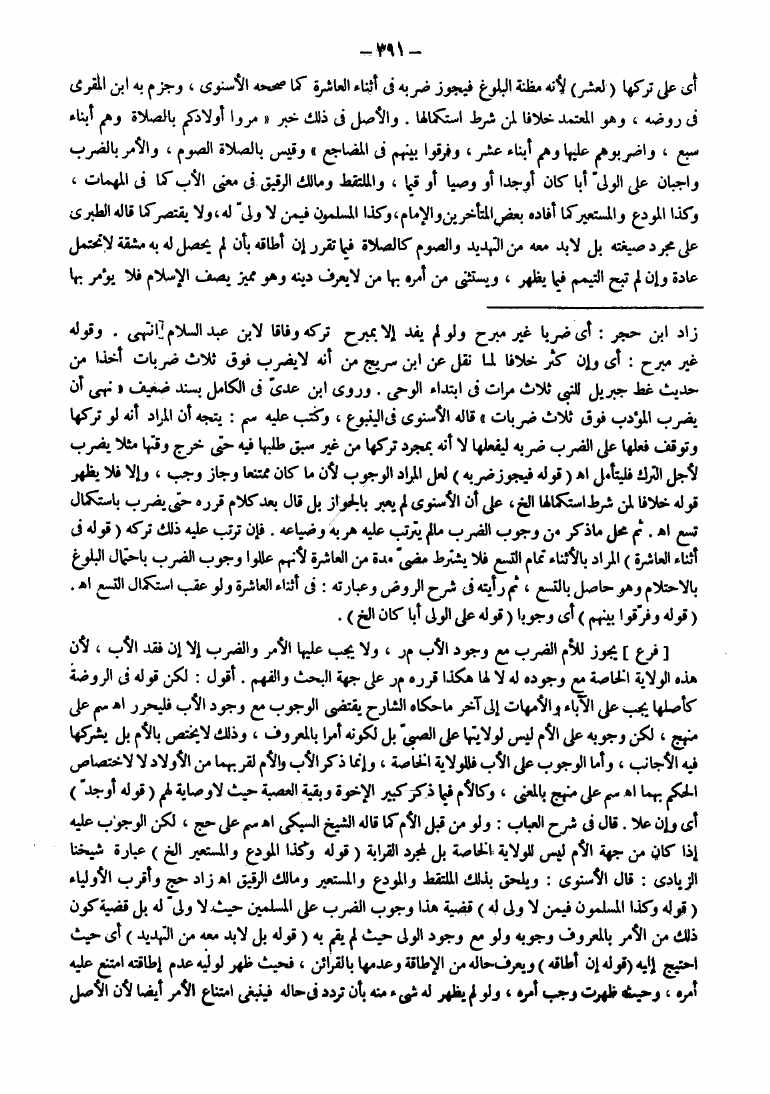 – ٣٩١ –
أى على تركها ( لعشر ) لأنه مظنة البلوغ فيجوز ضربه فى أثناء العاشرة كما صححه الأسنوى ، وجزم به ابن المقرى
فى روضه ، وهو المعتمد خلافا لمن شرط استكمالها . والأصل فى ذلك خبر « مروا أولادكم بالصلاة وهم أبناء
سبع ، واضربوهم عليها وهم أبناء عشر ، وفرقوا بينهم فى المضاجع » وقيس بالصلاة الصوم ، والأمر بالضرب
واجبان على الولىّ أبا كان أوجدا أو وصيا أو قيما ، والملتقط ومالك الرقيق فى معنى الأب كما فى المهمات ،
وكذا المودع والمستعير كما أفاده بعض المتأخرين والإمام،وكذا المسلمون فيمن لا ولىّ له،ولا يقتصر كما قاله الطبرى
على مجرد صيغته بل لابد معه من التهديد والصوم كالصلاة فيما تقرر إن أطاقه بأن لم يحصل له به مشقة لاتحتمل
عادة وإن لم تبح التيمم فيما يظهر ، ويستثنى من أمره بها من لايعرف دينه وهو مميز يصف الإسلام فلا يؤمر بها
زاد ابن حجر : أى ضربا غير مبرح ولو لم يفد إلا بمبرح تركه وفاقا لابن عبد السلام انتهى . وقوله
غير مبرح : أى وإن كثر خلافا لما نقل عن ابن سريج من أنه لايضرب فوق ثلاث ضربات أخذا من
حديث غط جبريل للنبي ثلاث مرات فى ابتداء الوحى . وروى ابن عدىّ فى الكامل بسند ضعيف « نهى أن
يضرب المؤدب فوق ثلاث ضربات » قاله الأسنوى فى الينبوع ، وكتب عليه سم : يتجه أن المراد أنه لو تركها
وتوقف فعلها على الضرب ضربه ليفعلها لا أنه بمجرد تركها من غير سبق طلبها فيه حتى خرج وقتها مثلا يضرب
لأجل الترك فليتأمل اه ( قوله فيجوز ضربه ) لعل المراد الوجوب لأن ما كان ممتنعا وجاز وجب ، وإلا فلا يظهر
قوله خلافا لمن شرط استكمالها الخ، على أن الأسنوى لم يعبر بالجواز بل قال بعد كلام قرره حتى يضرب باستكمال
تسع اه . ثم محل ماذكر من وجوب الضرب مالم يترتب عليه هربه وضياعه . فإن ترتب عليه ذلك تركه ( قوله فى
أثناء العاشرة ) المراد بالأثناء تمام التسع فلا يشترط مضىّ مدة من العاشرة لأنهم عللوا وجوب الضرب باحتمال البلوغ
بالاحتلام وهو حاصل بالتسع ، ثم رأيته فى شرح الروض وعبارته : فى أثناء العاشرة ولو عقب استكمال التسع اه .
( قوله وفرّقوا بينهم ) أى وجوبا ( قوله على الولى أبا كان الخ ) .
[ فرع ] يجوز للأم الضرب مع وجود الأب مر ، ولا يجب عليها الأمر والضرب إلا إن فقد الأب ، لأن
هذه الولاية الخاصة مع وجوده له لا لها هكذا قرره مر على جهة البحث والفهم . أقول : لكن قوله فى الروضة
كأصلها يجب على الآباء والأمهات إلى آخر ماحكاه الشارح يقتضى الوجوب مع وجود الأب فليحرر اه سم على
منهج ، لكن وجوبه على الأم ليس لولايتها على الصبىّ بل لكونه أمرا بالمعروف ، وذلك لايختص بالأم بل يشركها
فيه الأجانب ، وأما الوجوب على الأب فللولاية الخاصة ، وإنما ذكر الأب والأم لقربهما من الأولاد لا لاختصاص
الحكم بهما اه سم على منهج بالمعنى ، وكالأم فيما ذكر كبير الإخوة وبقية العصبة حيث لاوصاية لهم ( قوله أوجدّ )
أى وإن علا . قال فى شرح العباب : ولو من قبل الأم كما قاله الشيخ السبكى اه سم على حج ، لكن الوجوب عليه
إذا كان من جهة الأم ليس للولاية الخاصة بل لمجرد القرابة ( قوله وكذا المودع والمستعير الخ ) عبارة شيخنا
الزيادى : قال الأسنوى : ويلحق بذلك الملتقط والمودع والمستعير ومالك الرقيق اه زاد حج وأقرب الأولياء
( قوله وكذا المسلمون فيمن لا ولى له ) قضية هذا وجوب الضرب على المسلمين حيث لا ولىّ له بل قضية كون
ذلك من الأمر بالمعروف وجوبه ولو مع وجود الولى حيث لم يقم به ( قوله بل لابد معه من التهديد ) أى حيث
احتيج إليه (قوله إن أطاقه ) ويعرف حاله من الإطاقة وعدمها بالقرائن ، فحيث ظهر لوليه عدم إطاقته امتنع عليه
أمره ، وحيث ظهرت وجب أمره ، ولو لم يظهر له شىء منه بأن تردد فى حاله فينبغى امتناع الأمر أيضا لأن الأصل